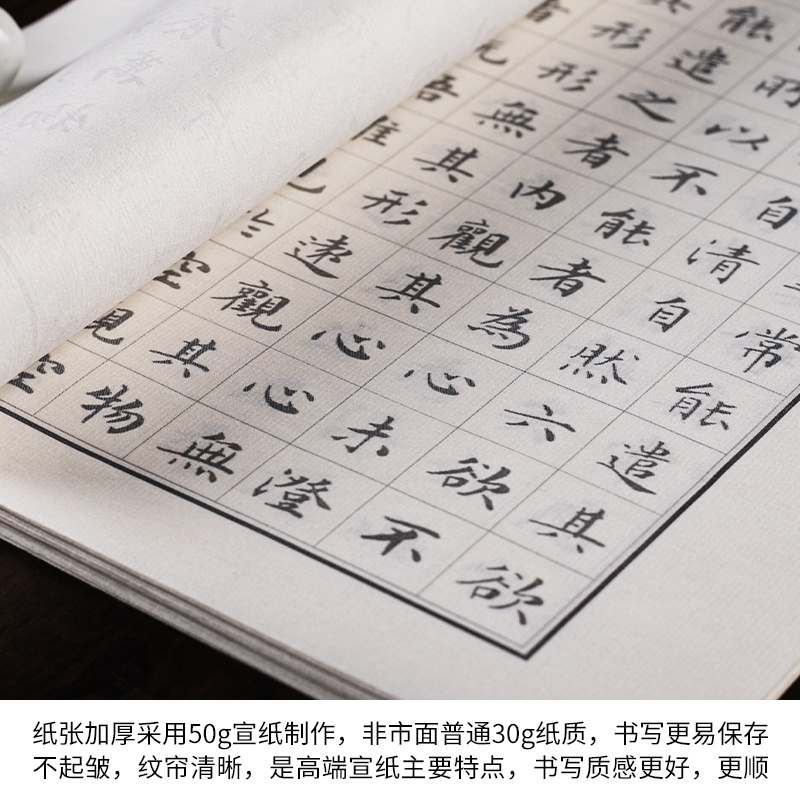 常能遣其欲
自清自然六欲不
所以不能者為心未澄
能遣之者内觀其心心無
其形形無其形遠觀其物
空
空
纸张加厚采用50g宣纸制作，非市面普通30g纸质，书写更易保存
不起皱，纹帘清晰，是高端宣纸主要特点，书写质感更好，更顺